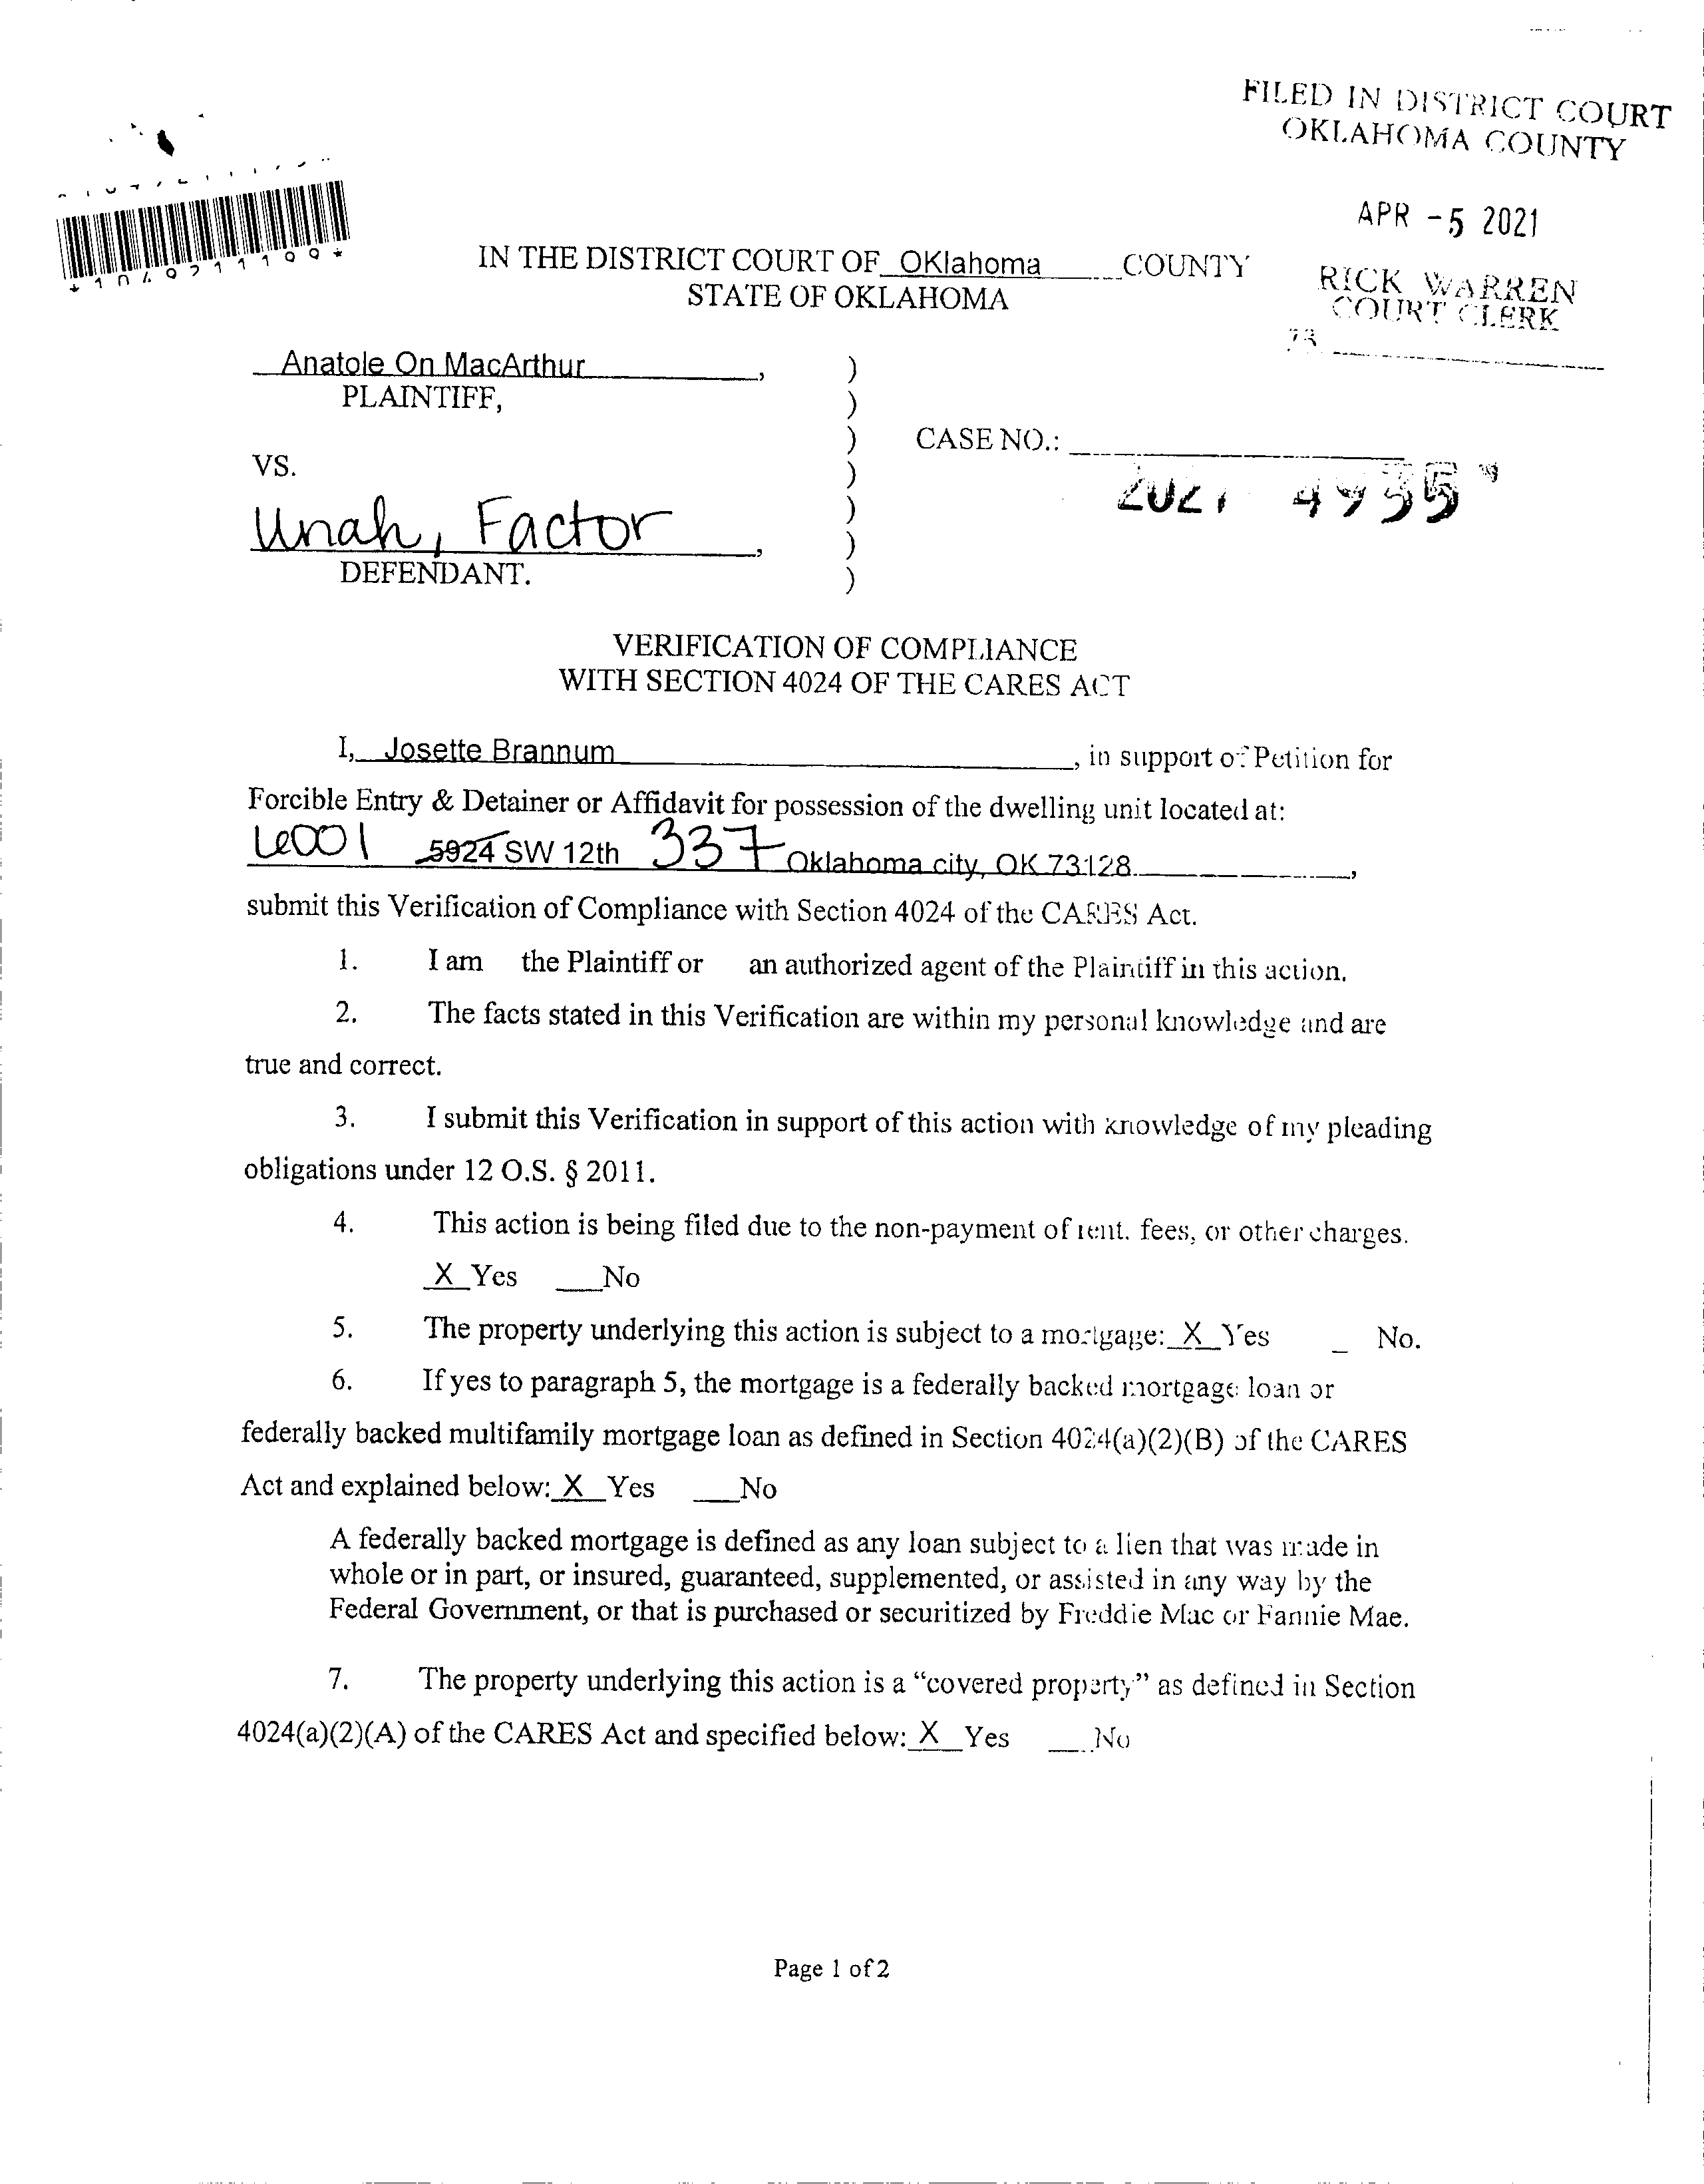 FILED IN DISTRICT COURT
OKLAHOMA COUNTY
APR -5 2021
RICK WARREN
COURT CLERK
73
IN THE DISTRICT COURT OF OKlahoma COUNTY
STATE OF OKLAHOMA
Anatole On MacArthur,
PLAINTIFF,
VS.
CASE NO.:
2021 4935
Unah, Factor,
DEFENDANT.
VERIFICATION OF COMPLIANCE
WITH SECTION 4024 OF THE CARES ACT
I, Josette Brannum, in support of Petition for
Forcible Entry & Detainer or Affidavit for possession of the dwelling unit located at:
6001 5924 SW 12th 337 Oklahoma city, OK 73128,
submit this Verification of Compliance with Section 4024 of the CARES Act.
1. I am the Plaintiff or an authorized agent of the Plaintiff in this action.
2. The facts stated in this Verification are within my personal knowledge and are
true and correct.
3. I submit this Verification in support of this action with knowledge of my pleading
obligations under 12 O.S. § 2011.
4. This action is being filed due to the non-payment of rent, fees, or other charges.
X Yes ___No
5. The property underlying this action is subject to a mortgage: X Yes _ No.
6. If yes to paragraph 5, the mortgage is a federally backed mortgage loan or
federally backed multifamily mortgage loan as defined in Section 4024(a)(2)(B) of the CARES
Act and explained below: X Yes ___No
A federally backed mortgage is defined as any loan subject to a lien that was made in
whole or in part, or insured, guaranteed, supplemented, or assisted in any way by the
Federal Government, or that is purchased or securitized by Freddie Mac or Fannie Mae.
7. The property underlying this action is a “covered property” as defined in Section
4024(a)(2)(A) of the CARES Act and specified below: X Yes ___No
Page 1 of 2